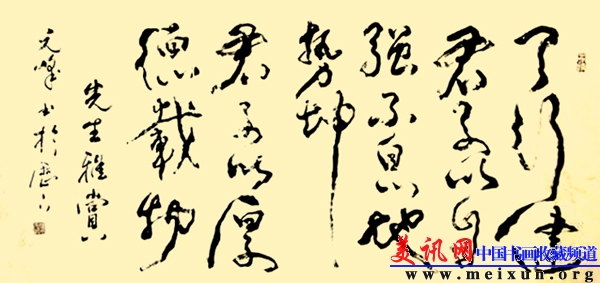 天行健
君子以自
强不息地
勢坤
君子以厚
德載物
先生雅賞
元峰书於歷下
美讯网
中国书画收藏频道
www.meixun.org